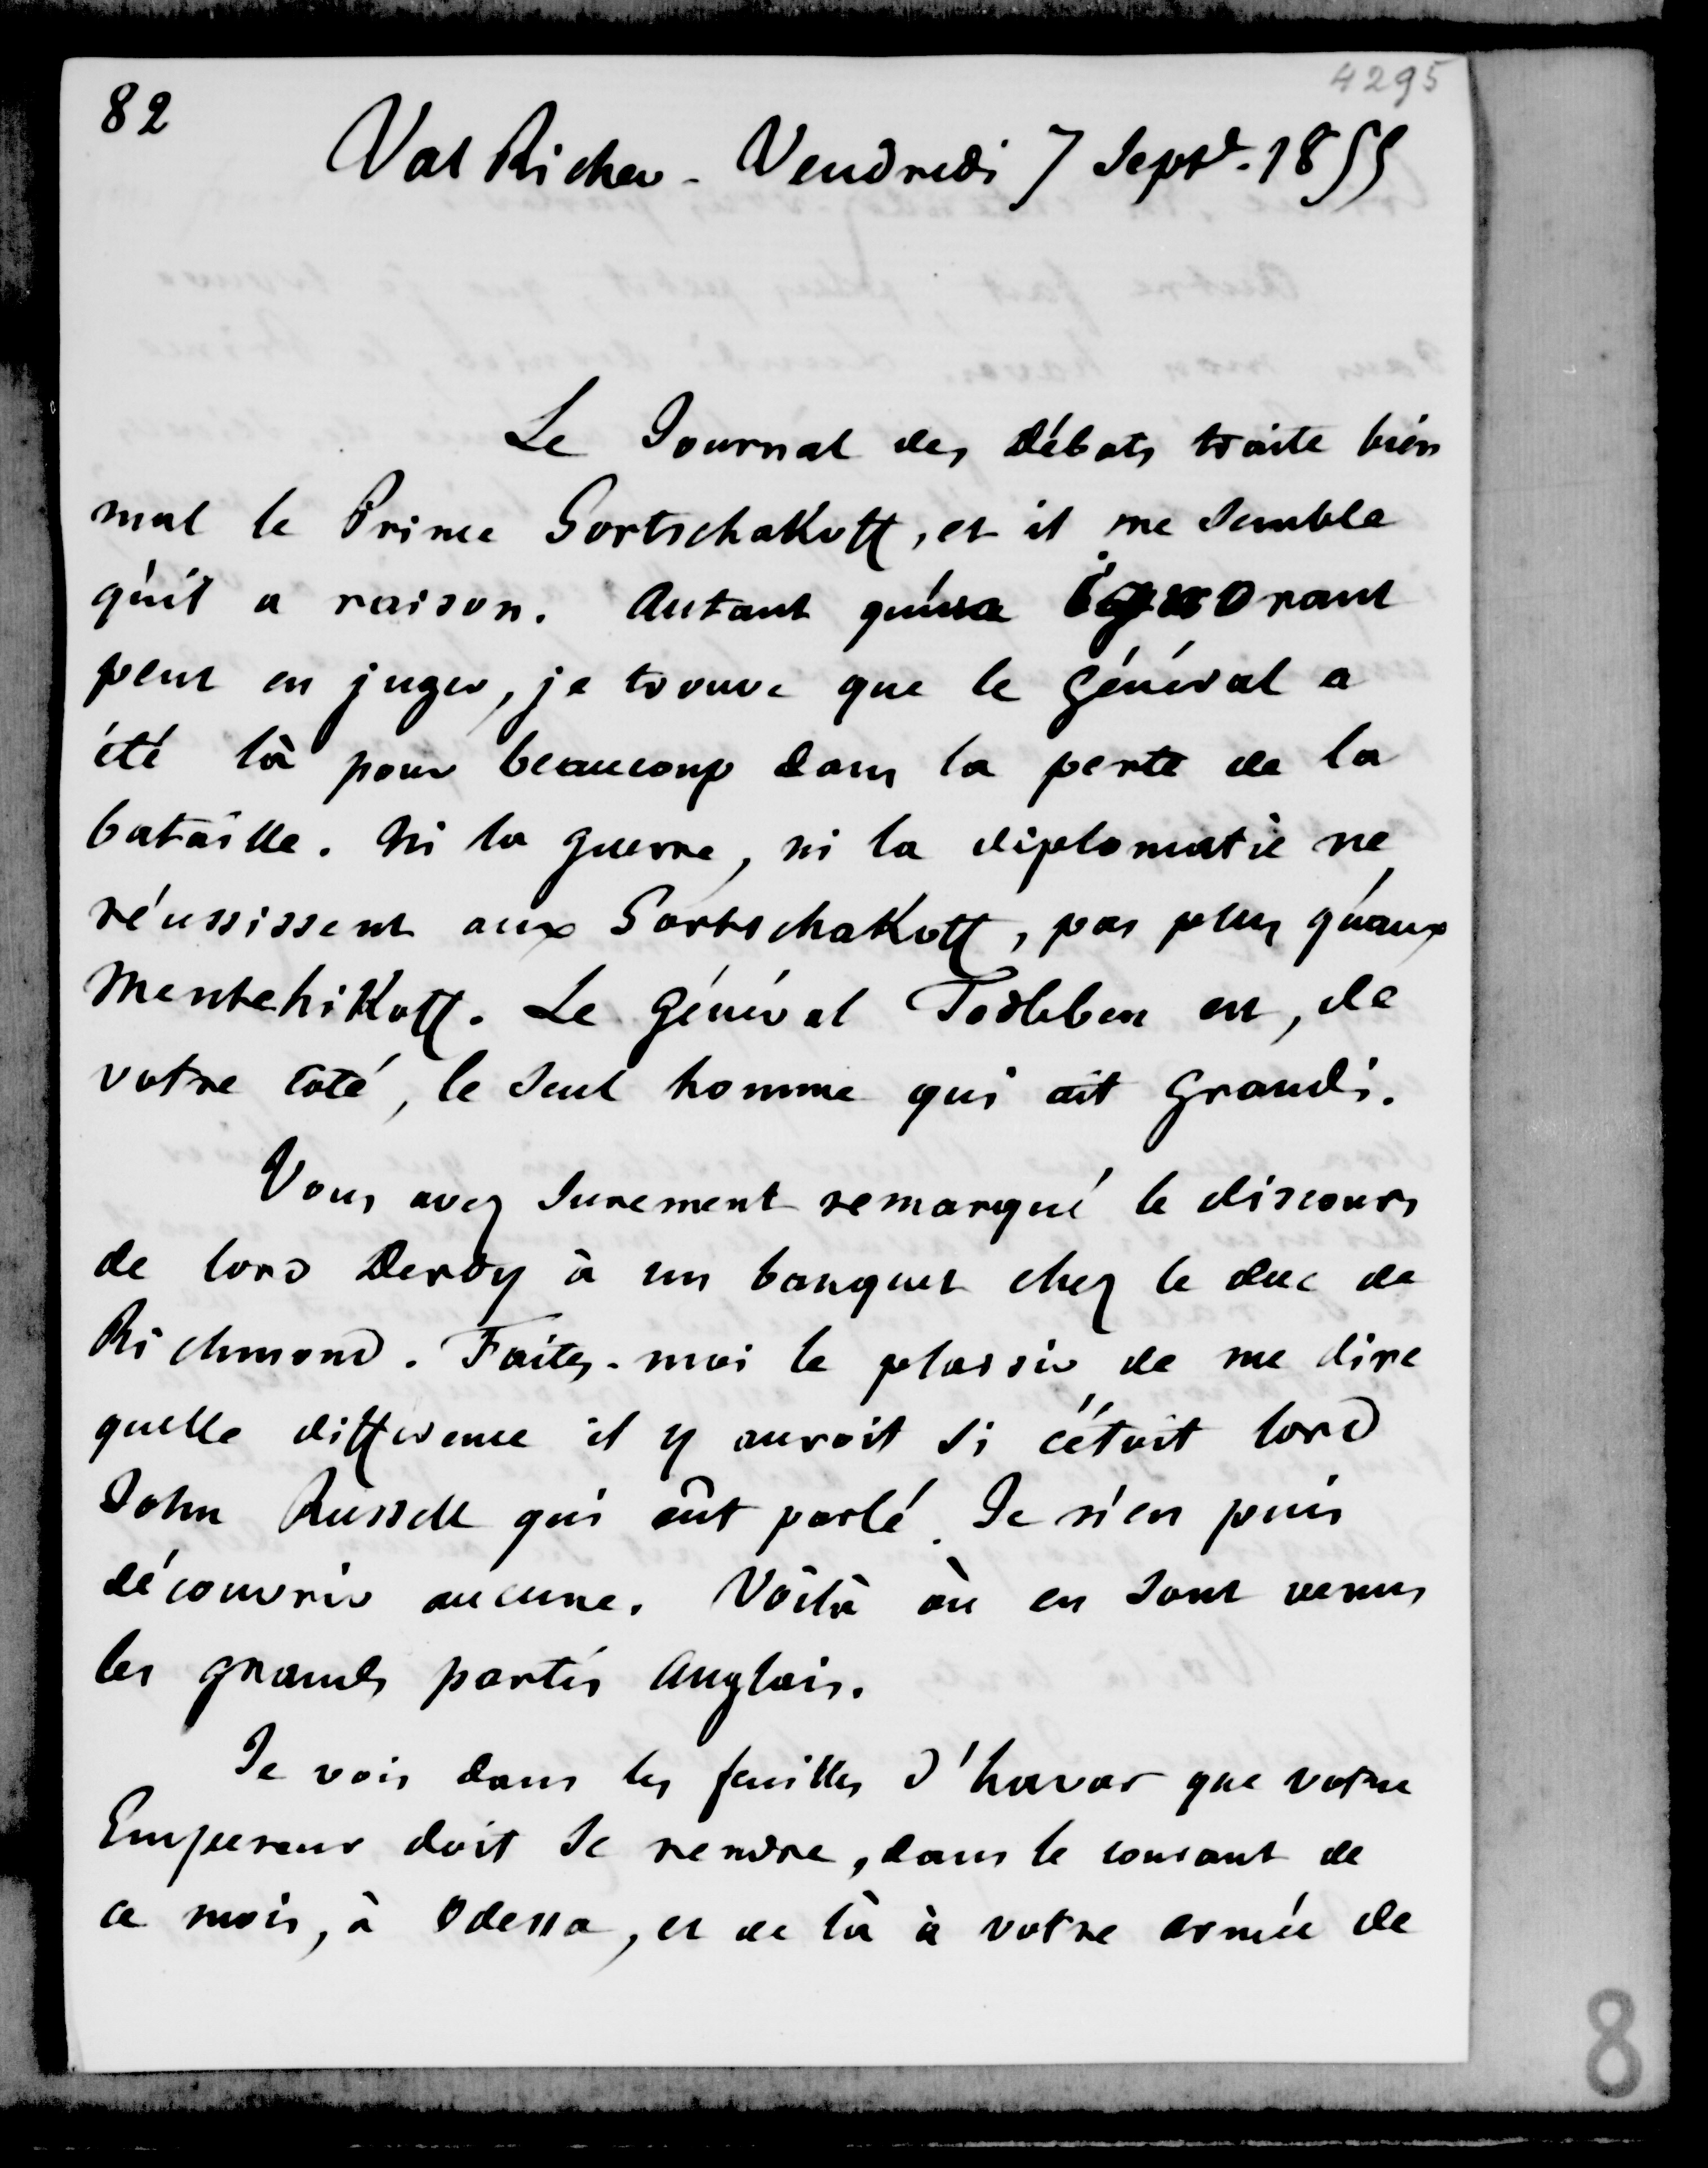 4295
82
Val Richer - Vendredi 7 Septe. 1855
Le Journal des Débats traite bien
mal le Prince Gortschakoff, et il me semble
qu'il a raison. Autant qu'un ignorant
peut en juger, je trouve que le général a
été là pour beaucoup dans la perte de la
bataille. Ni la guerre, ni la diplomatie ne
réussissent aux Gortschakoff, pas plus qu'aux
Mentchikoff. Le Général Todleben est, de
votre coté, le seul homme qui ait grandi.
Vous avez surement remarqué le discours
de lord Derby à un banquet chez le duc de
Richmond. Faites-moi le plaisir de me dire
quelle différence il y auroit si c'étoit lord
John Russell qui eût parlé. Je n'en puis
découvrir aucune. Voilà où en sont venus
les grands partis Anglais.
Je vois dans les feuilles d'havas que votre
Empereur doit se rendre, dans le courant de
ce mois, à Odessa, et de là à votre armée de
8